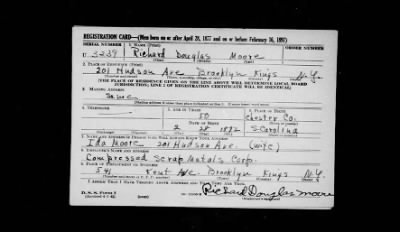 REGISTRATION CARD—(Men born on or after April 28, 1877 and on or before February 16, 1897)
SERIAL NUMBER 1. NAME (Print) ORDER NUMBER
U 3239 Richard Douglas Moore
2. PLACE OF RESIDENCE (Print)
201 Hudson Ave Brooklyn Kings N.Y.
[THE PLACE OF RESIDENCE GIVEN ON THE LINE ABOVE WILL DETERMINE LOCAL BOARD
JURISDICTION; LINE 2 OF REGISTRATION CERTIFICATE WILL BE IDENTICAL]
3. MAILING ADDRESS
Same
4. TELEPHONE 5. AGE IN YEARS 6. PLACE OF BIRTH
50 Chester Co.
DATE OF BIRTH
2 28 1892 S. Carolina
7. NAME AND ADDRESS OF PERSON WHO WILL ALWAYS KNOW YOUR ADDRESS
Ida Moore 201 Hudson Ave. (wife)
8. EMPLOYER'S NAME AND ADDRESS
Compressed Scrap Metals Corp.
9. PLACE OF EMPLOYMENT OR BUSINESS
541 Kent Ave Brooklyn Kings N.Y.
I AFFIRM THAT I HAVE VERIFIED ABOVE ANSWERS AND THAT THEY ARE TRUE.
D. S. S. Form 1
Richard Douglas Moore